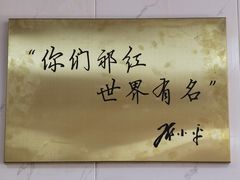 “你们祁红
世界有名”
邓小平